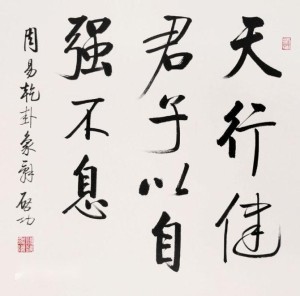 天行健
君子以自
强不息
周易乾卦象辭 啟功